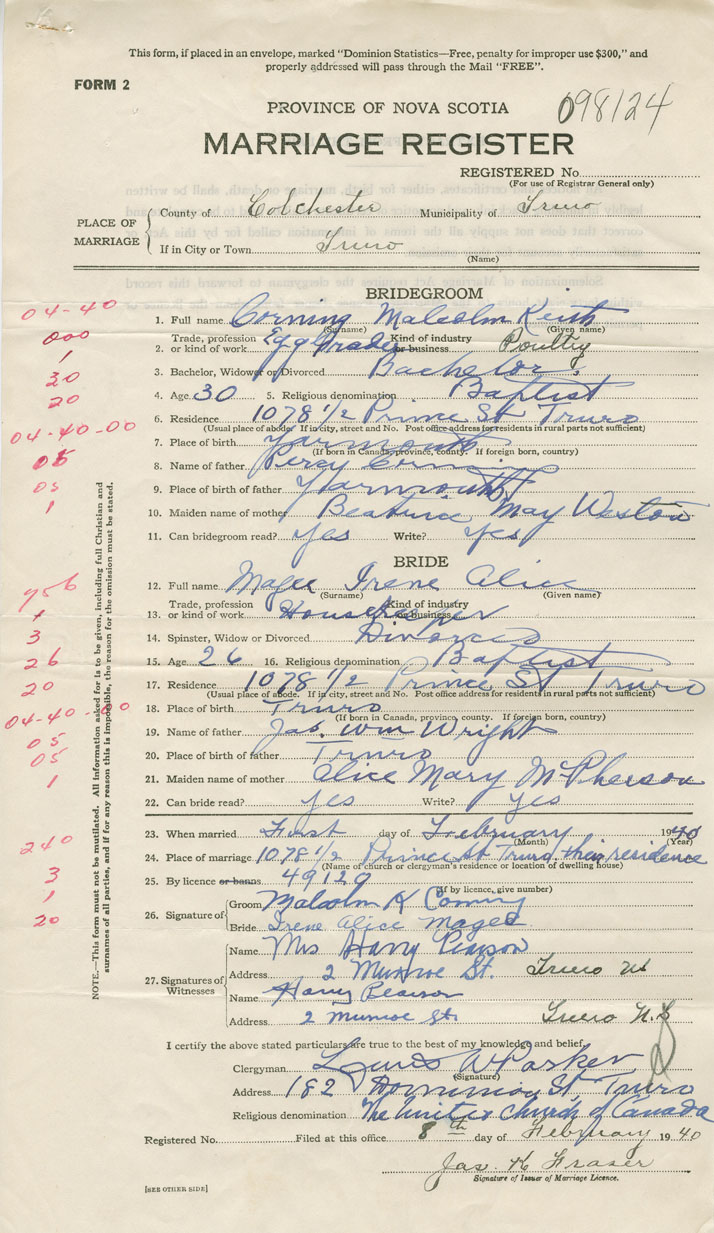 This form, if placed in an envelope, marked "Dominion Statistics—Free, penalty for improper use $300," and
properly addressed will pass through the Mail "FREE".
FORM 2
098124
PROVINCE OF NOVA SCOTIA
MARRIAGE REGISTER
REGISTERED No.
(For use of Registrar General only)
PLACE OF MARRIAGE
County of Colchester Municipality of Truro
If in City or Town Truro
(Name)
BRIDEGROOM
04-40
1. Full name Corning Malcolm Keith
(Surname) (Given name)
000
Trade, profession Kind of industry
2. or kind of work Egg Grader or business Poultry
1
3. Bachelor, Widower or Divorced Bachelor.
30
4. Age 30 5. Religious denomination Baptist
20
6. Residence 1078 1/2 Prince St Truro
(Usual place of abode. If in city, street and No. Post office address for residents in rural parts not sufficient)
04-40-00
7. Place of birth Yarmouth
(If born in Canada, province, county. If foreign born, country)
05
8. Name of father Percy Corning
05
9. Place of birth of father Yarmouth
1
10. Maiden name of mother Beatrice May Weston
11. Can bridegroom read? yes Write? yes
BRIDE
12. Full name Magee Irene Alice
(Surname) (Given name)
956
Trade, profession Kind of industry
13. or kind of work Housekeeper or business
3
14. Spinster, Widow or Divorced Divorced
26
15. Age 26 16. Religious denomination Baptist
20
17. Residence 1078 1/2 Prince St Truro
(Usual place of abode. If in city, street and No. Post office address for residents in rural parts not sufficient)
04-40-00
18. Place of birth Truro
(If born in Canada, province, county. If foreign born, country)
05
19. Name of father Jas. Wm Wright
05
20. Place of birth of father Truro
1
21. Maiden name of mother Alice Mary McPherson
22. Can bride read? yes Write? yes
23. When married First day of February 1940
(Month) (Year)
240
24. Place of marriage 1078 1/2 Prince St Truro their residence
(Name of church or clergyman's residence or location of dwelling house)
3
25. By licence or banns 49129
(If by licence, give number)
1
26. Signature of
Groom Malcolm K Corning
20
Bride Irene Alice Magee
27. Signatures of Witnesses
Name Mrs Harry Pearson
Address 2 Munroe St. Truro NS
Name Harry Pearson
Address 2 Munroe St. Truro N.S
I certify the above stated particulars are true to the best of my knowledge and belief.
Clergyman Lewis W Parker
(Signature)
Address 182 Dominion St Truro
Religious denomination The United Church of Canada
Registered No. Filed at this office 8th day of February 1940
Jas. K Fraser
Signature of Issuer of Marriage Licence.
[SEE OTHER SIDE]
NOTE.—This form must not be mutilated. All information asked for is to be given, including full Christian and
surnames of all parties, and if for any reason this is impossible, the reason for the omission must be stated.